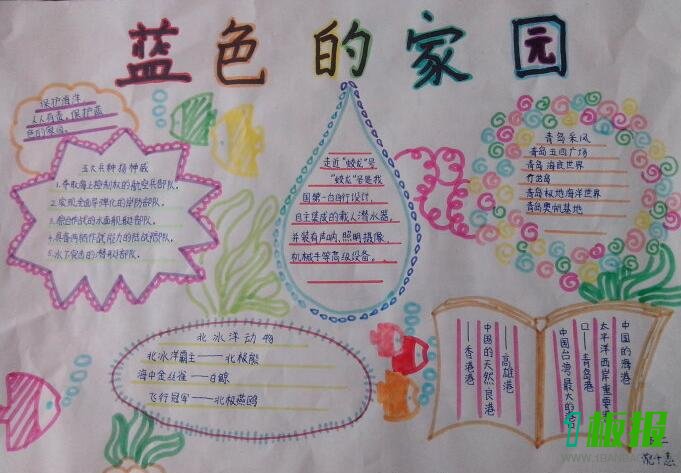 蓝色的家园
保护海洋
人人有责,保护蓝
色的家园。
五大兵种扬神威
1.争取海上控制权的航空兵部队。
2.实现全面导弹化的岸防部队。
3.海
作战的水面舰艇部队。
4.具备两栖作战能力的陆战部队。
5.水下突击的潜艇部队。
走近“蛟龙”号
“蛟龙”号是我
国第一台自行设计,
自主集成的载人潜水器,
并装有声呐,照明,摄像,
机械手等高级设备。
青岛采风
青岛五四广场
青岛海底世界
青岛极地海洋世界
青岛奥帆基地
北冰洋动物
北冰洋霸主——北极熊
海中金丝雀——白鲸
飞行冠军——北极燕鸥
中国的海港
太平洋西岸重要
口——青岛港
中国台湾最大的
——高雄港
中国的天然良港
——香港港
1板报
WWW.1BANBAO